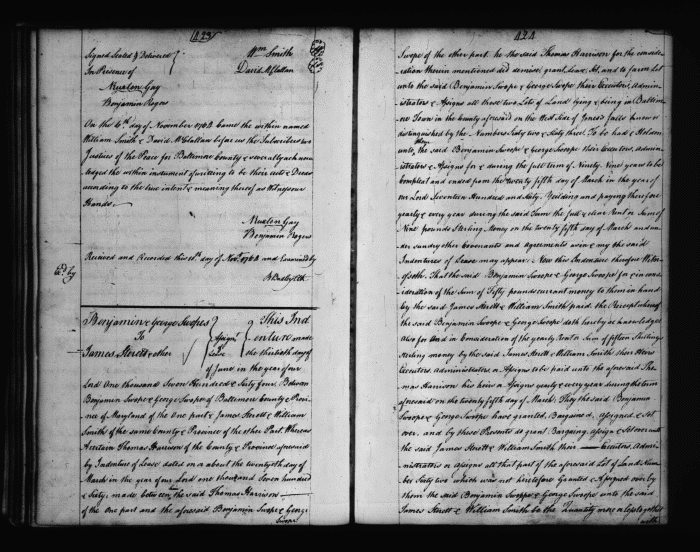 423
Signed Sealed & Delivered
In Presence of
Wm Smith
David McLellan
Nicholas Gay
Benjamin Rogers
On the 6th day of November 1764 Came the within named
William Smith & David McLellan before us the Subscribers two
Justices of the Peace for Baltimore County & severally acknow
ledged the within instrument of writing to be their acts & Deeds
according to the true intent & meaning thereof as Witness our
Hands
Benjamin Rogers
Received and Recorded this 10th day of Novr 1764 and Examined by
Exd by
Benjamin & George Swopes
To
James Sterett & other
Assignt
Lease
This Ind
enture made
the thirtieth day of
June in the year of our
Lord One thousand Seven Hundred & Sixty four Between
Benjamin Swope & George Swope of Baltimore County & Provi
nce of Maryland of the One part & James Sterett & William
Smith of the same County & Province of the other Part Whereas
A certain Thomas Harrison of the County & Province aforesaid
by Indenture of Lease dated on or about the twentyeth day of
March in the year of our Lord one thousand Seven hundred
& Sixty made between the said Thomas Harrison
of the One part and the aforesaid Benjamin Swope & George
Swope
424
Swope of the other part he the said Thomas Harrison for the conside
ration therein mentioned did demise, grant, Lease, Set, and to farm Let
unto the said Benjamin Swope & George Swope their Executors, Admin
istrators & Assigns all those two Lots of Land lying & being in Baltimo
re Town in the County aforesaid on the West Side of Jones's falls known &
distinguished by the Numbers Sixty two & Sixty three. To be had & Holden
unto they the said Benjamin Swope & George Swope their Executors, Admin
istrators & Assigns for & during the full term of Ninety Nine years to be
Compleat and ended from the twenty fifth day of March in the year of
our Lord Seventeen Hundred and Sixty. Yeilding and paying therefore
yearly & every year during the said Term the full & clear Rent or Sum of
Nine pounds Sterling Money on the twenty fifth day of March and un
der sundry other Covenants and Agreements as in & by the said
Indenture of Lease may appear. Now this Indenture therefore Witn
esseth. That the said Benjamin Swope & George Swope for & in cons
ideration of the Sum of Fifty pounds current money to them in hand
by the said James Sterett & William Smith paid the Receipt whereof
the said Benjamin Swope & George Swope doth hereby acknowledge
Also for and in Consideration of the yearly Rent or Sum of fifteen Shillings
Sterling money by the said James Sterett & William Smith their Heirs
Executors, Administrators or Assigns to be paid unto the aforesaid Tho
mas Harrison his heirs or Assigns yearly & every year during the term
aforesaid on the twenty fifth day of March. They the said Benjamin
Swope & George Swope have granted, Bargained, assigned & Set
over, and by these Presents do grant Bargain, assign & Set over unto
the said James Sterett & William Smith their Executors, Admin
istrators or assigns all that part of the aforesaid Lot of Land Num
ber Sixty two which was not heretofore Granted & Assigned over by
them the said Benjamin Swope & George Swope unto the said
James Sterett & William Smith be the Quantity more or less together
with